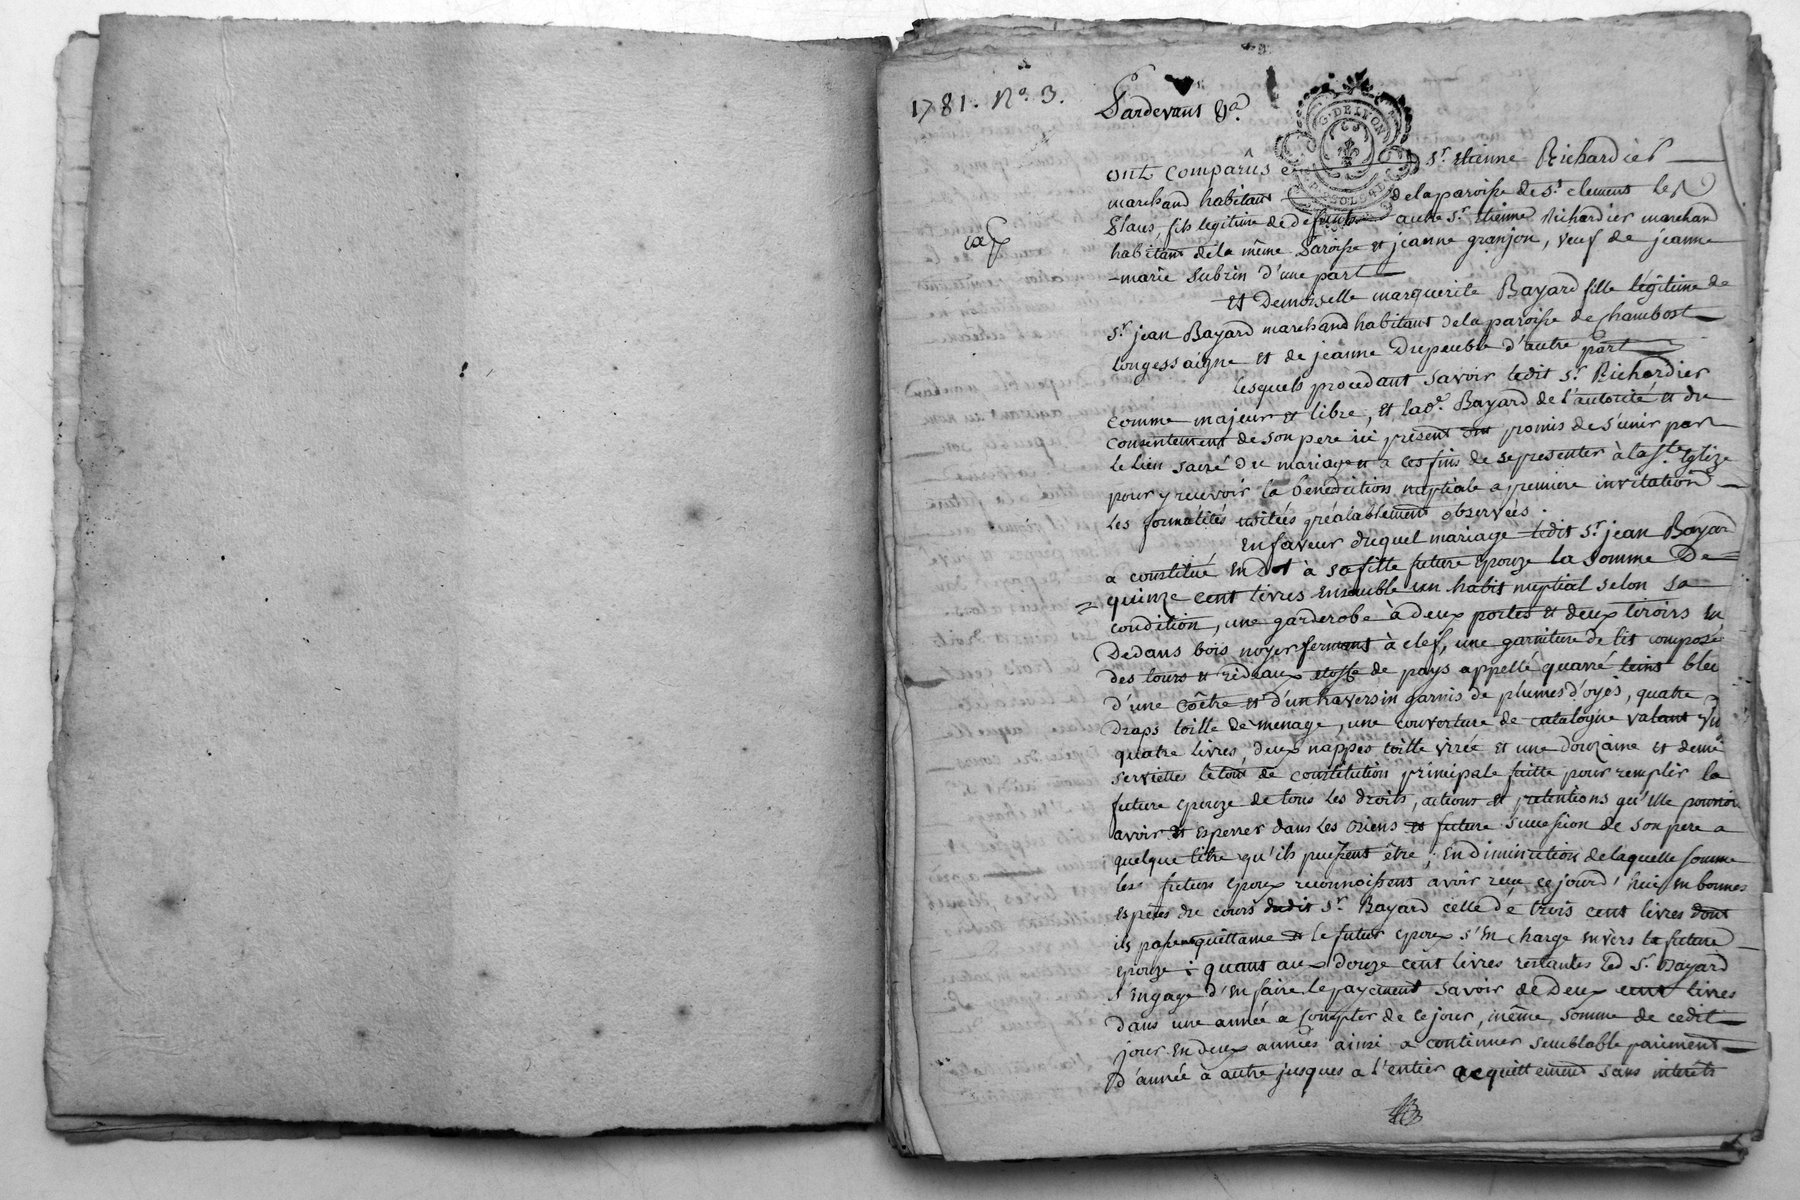 1781. No. 3.
Pardevant &a.
G. DE LYON
ont comparûs sr. etienne Richardier
marchand habitant de la paroisse de st. clement les
Places, fils legitime de defunts autre sr. Etienne Richardier marchand
habitant de la même Paroisse et jeanne granjon, veuf de jeanne
-marie Subrin d'une part
Et Demoiselle marguerite Bayard fille légitime de
sr. jean Bayard marchand habitant de la paroisse de Chambost
longessaigne et de jeanne Dupeuble d'autre part
lesquels procedant savoir ledit sr. Richardier
comme majeur et libre, et lade. Bayard de l'autorité et du
consentement de son pere ici présent ont promis de s'unir par
le lien sacré du mariage et a ces fins de se presenter à la ste Eglize
pour y recevoir la benediction nuptiale a premiere invitation
les formalités usitées préalablement observées.
En faveur duquel mariage ledit sr. jean Bayard
a constitué en dot à sa fille future epouze la somme De
quinze cent livres ensemble un habit nuptial selon sa
condition, une garderobe à deux portes et deux tiroirs en
Dedans bois noyer fermant à clef, une garniture de lit composé
des tours et rideaux etoffe de pays appellé quarré teint bleu
d'une coëtre et d'un traversin garnis de plumes d'oyes, quatre
draps toille de menage, une couverture de catalogne valant
quatre livres, deux nappes toille et une douzaine et demi
serviettes le tout de constitution principale faitte pour remplir la
future epouze de tous les droits, actions et pretentions qu'elle pourroi
avoir et esperrer dans les biens et future succession de son pere a
quelque titre qu'ils puissent être; En diminution de laquelle somme
les futurs epoux reconnoissent avoir recu ce jourd'hui en bonnes
especes du cours dudit sr. Bayard celle de trois cent livres dont
ils passent quittance et le futur epoux s'en charge envers la future
epouze; quant aux douze cent livres restantes led sr. Bayard
s'engage d'en faire le payement savoir de Deux cent livres
dans une année a compter de ce jour, même somme de cedit
jour en deux années ainsi a continuer semblable paiement
d'année à autre jusques a l'entier acquittement sans interêts